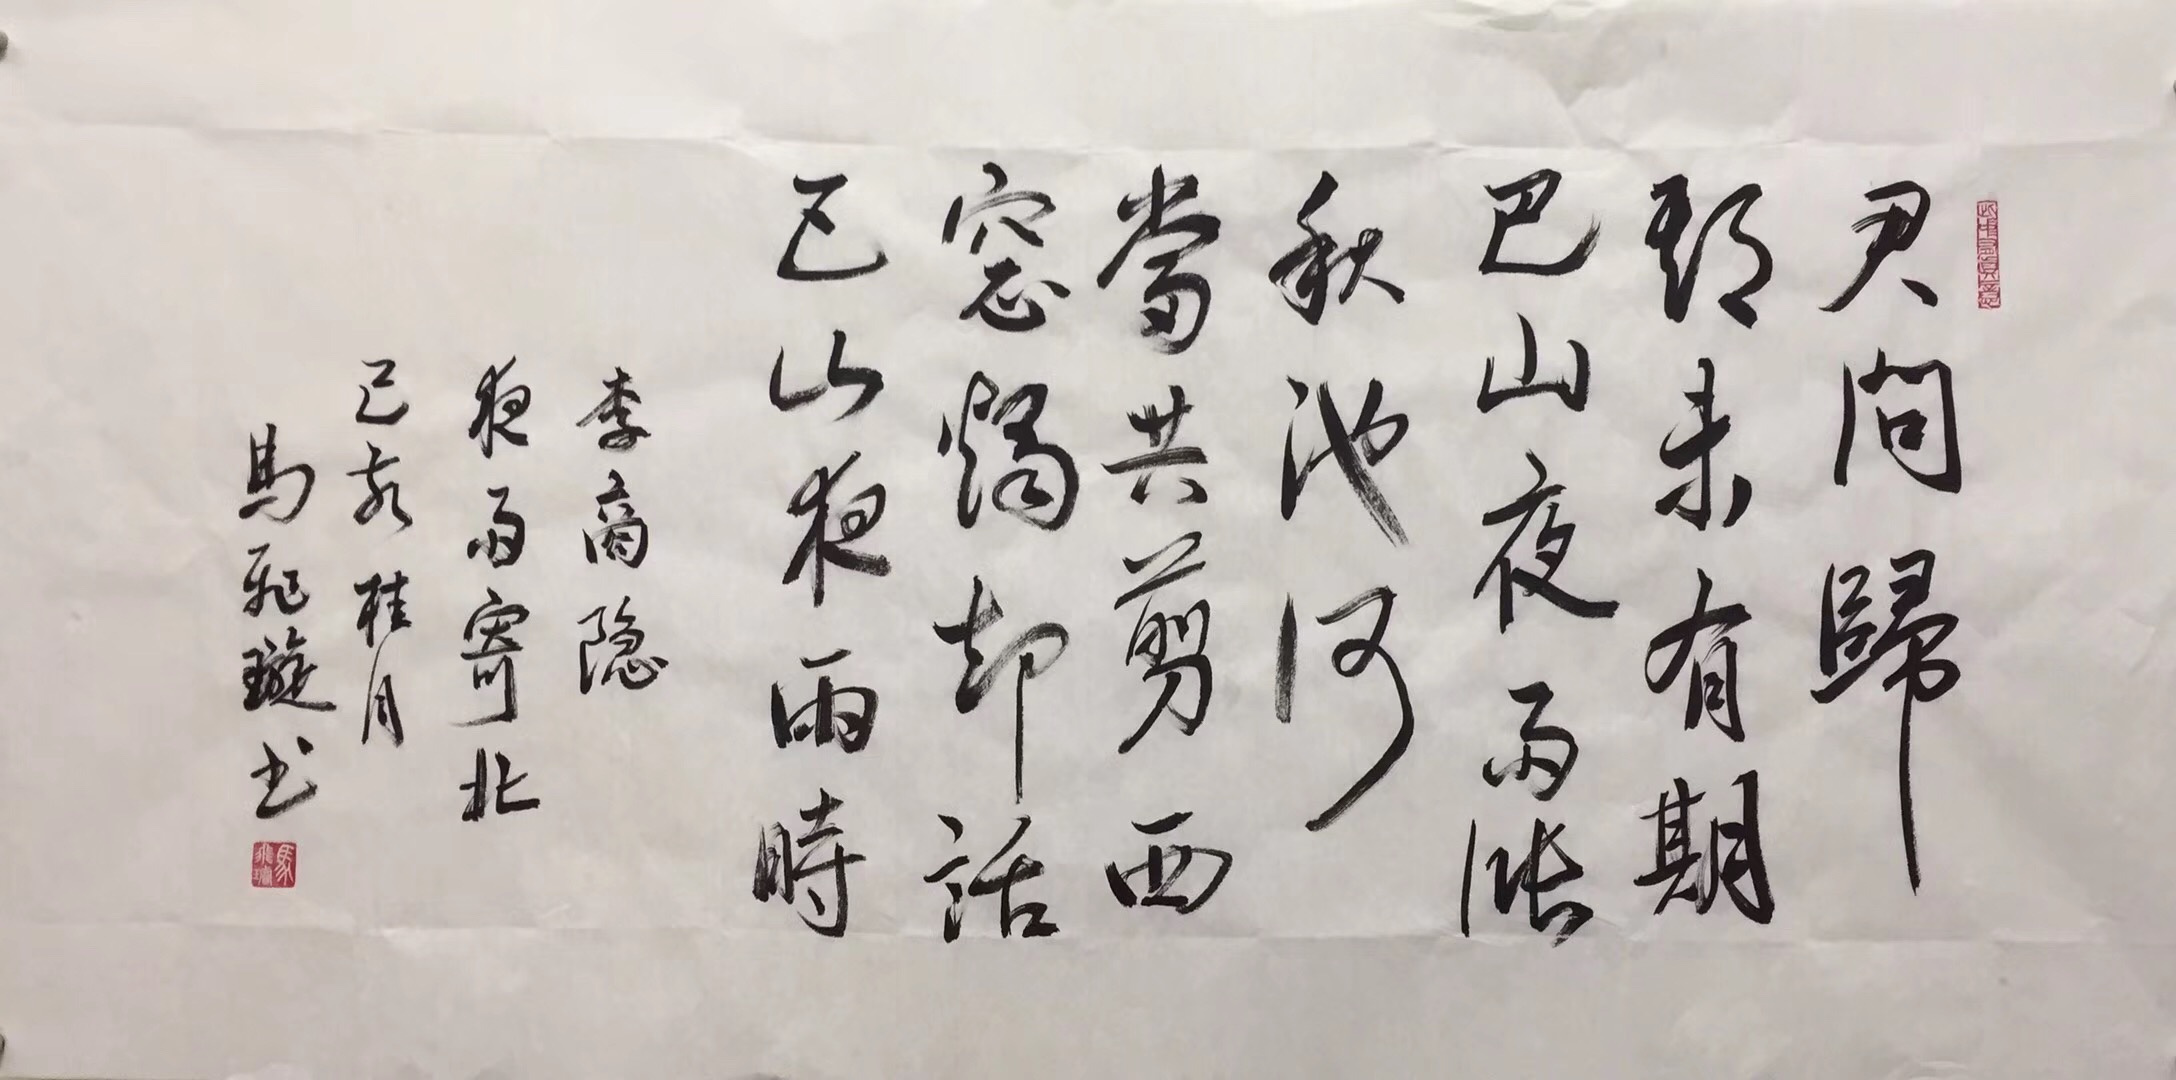 此中有真意
君問歸
期未有期
巴山夜雨漲
秋池何
當共剪西
窓燭却話
巴山夜雨時
李商隐
夜雨寄北
己亥桂月
馬飛璇书